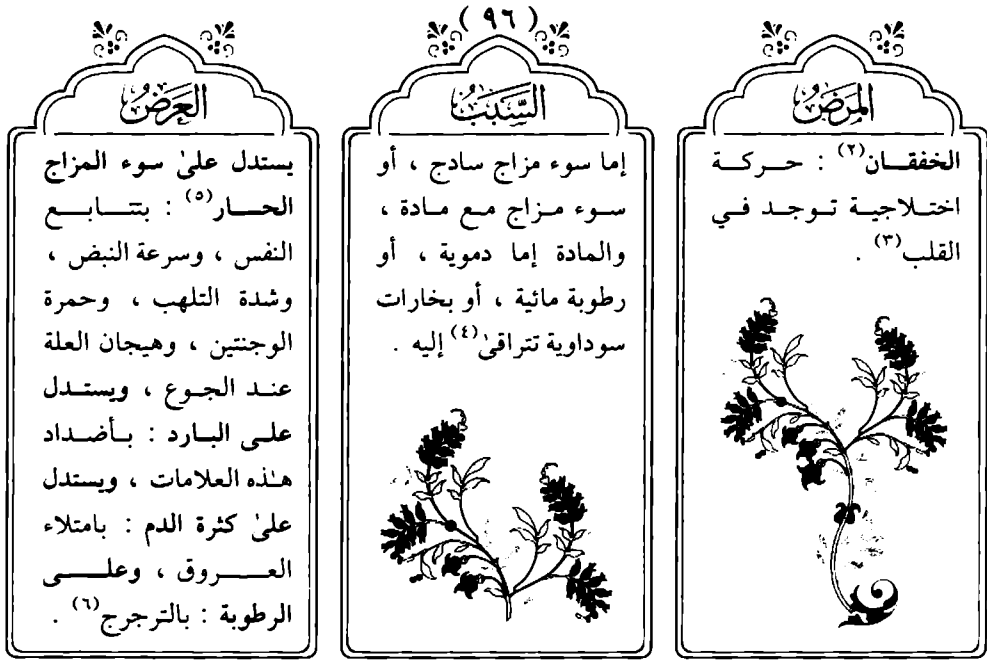 ( ٩٦ )
المَرَضُ
الخفقـان(٢) : حـركـة
اختـلاجيـة تـوجـد فـي
القلب(٣) .
السَّبَبُ
إما سوء مزاج ساذج ، أو
سوء مـزاج مع مـادة ،
والمادة إما دموية ، أو
رطوبة مائية ، أو بخارات
سوداوية تتراقىٰ(٤) إليه .
العَرَضُ
يستدل علىٰ سوء المزاج
الحـار(٥) : بتتـابـع
النفس ، وسرعة النبض ،
وشدة التلهب ، وحمرة
الوجنتين ، وهيجان العلة
عنـد الجـوع ، ويستـدل
علـى البـارد : بـأضـداد
هـٰذه العلامات ، ويستدل
علىٰ كثرة الدم : بامتلاء
العـروق ، وعلـى
الرطوبة : بالترجرج(٦) .